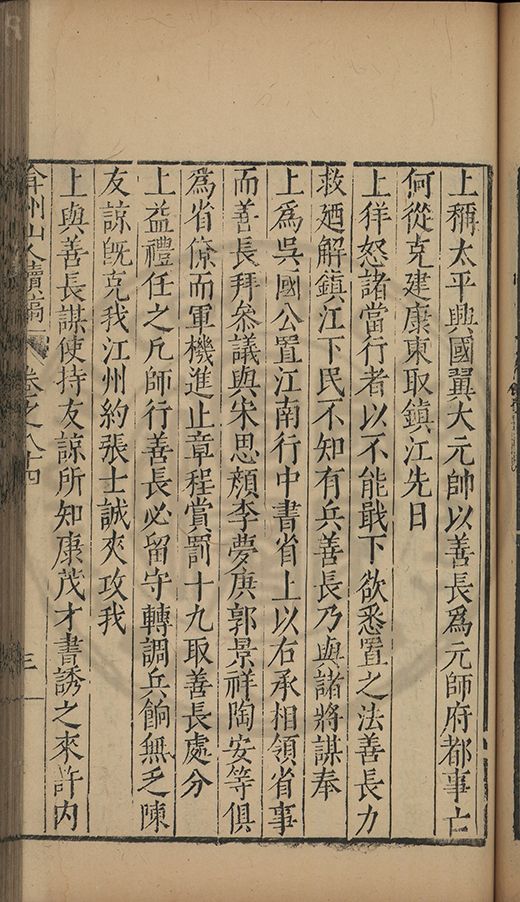 上稱太平興國翼大元帥以善長爲元帥府都事亡
何從克建康東取鎮江先日
上佯怒諸當行者以不能戢下欲悉置之法善長力
救廼解鎮江下民不知有兵善長乃與諸將謀奉
上爲吳國公置江南行中書省上以右丞相領省事
而善長拜參議與宋思顏李夢庚郭景祥陶安等俱
爲省僚而軍機進止章程賞罰十九取善長處分
上益禮任之凡師行善長必留守轉調兵餉無乏陳
友諒旣克我江州約張士誠夾攻我
上與善長謀使持友諒所知康茂才書誘之來許内
弇州山人續稿 卷之八十四 三